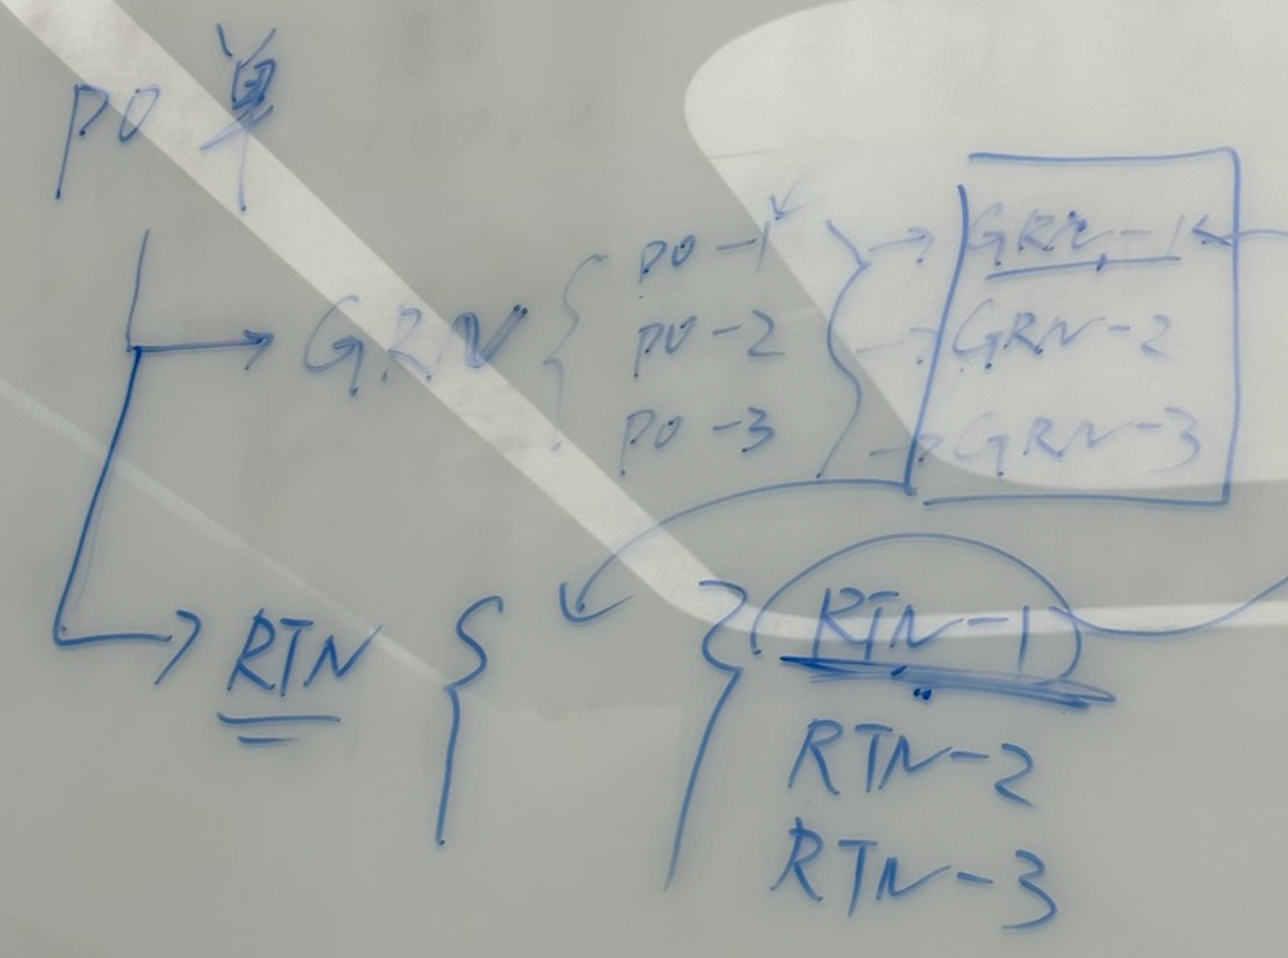 PO 单
GRN
PO-1
PO-2
PO-3
GRN-1
GRN-2
GRN-3
RTN
RTN-1
RTN-2
RTN-3